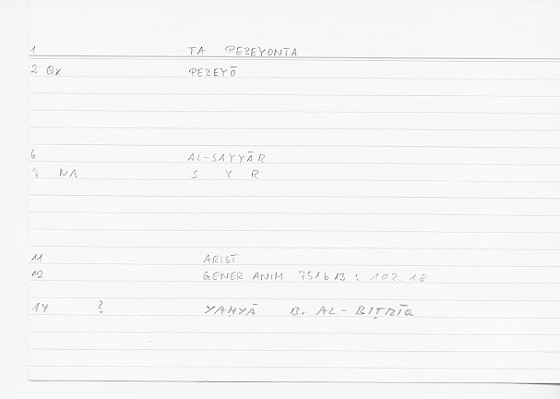 1 TA PEZEYONTA
2 QX PEZEYŌ
6 AL-SAYYĀR
8 NA S Y R
11 ARIST
12 GENER ANIM 751b13 : 102.18
14 ? YAḤYĀ B. AL-BIṬRĪQ